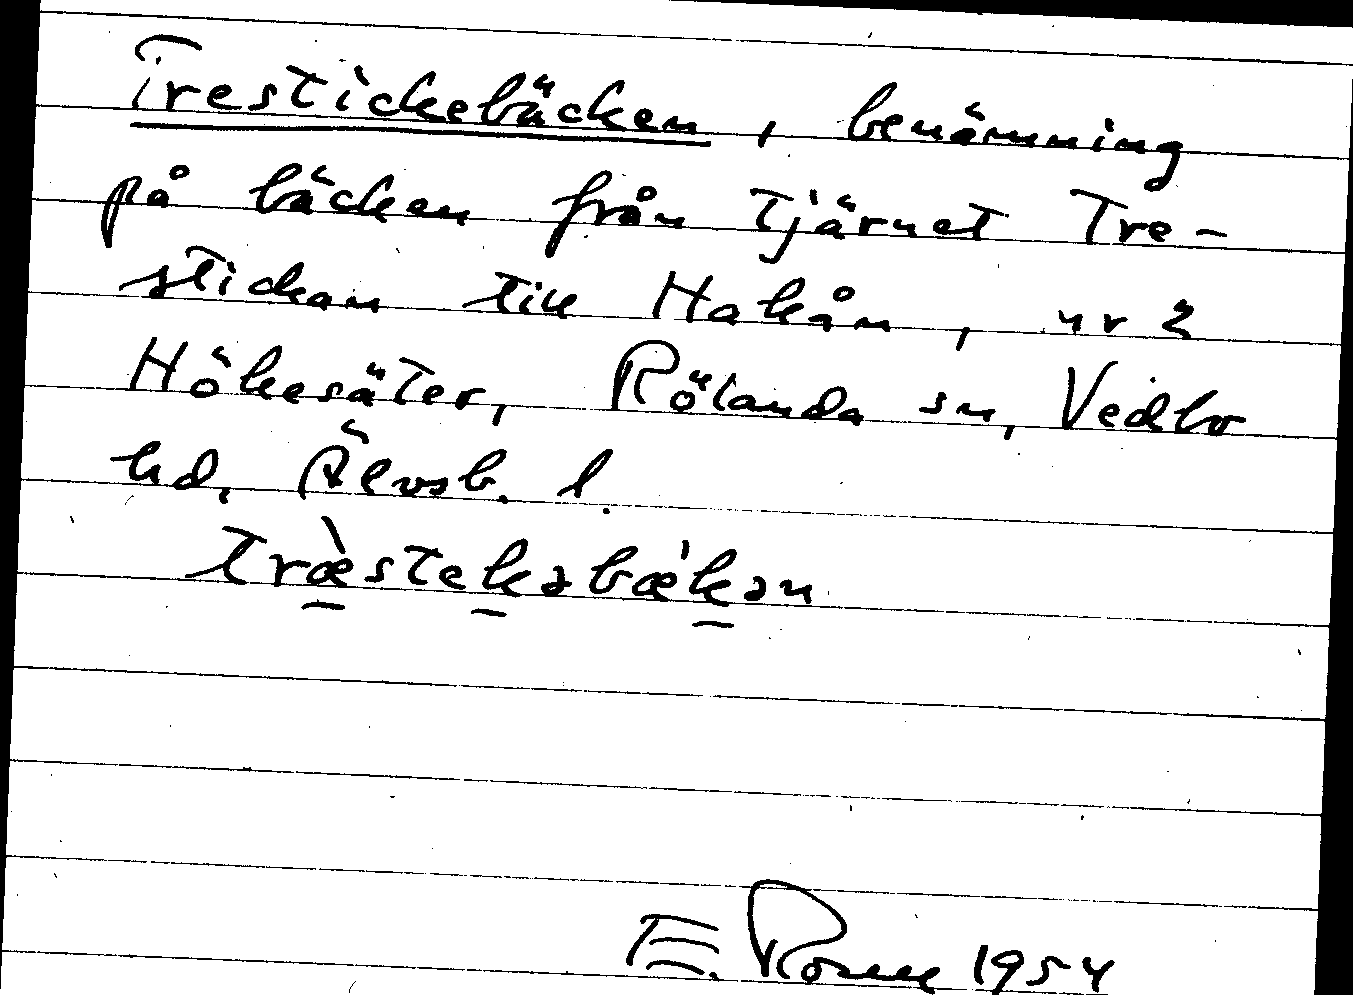 Trestickebäcken, benämning
på bäcken från tjärnet Tre-
stickan till Hakån, ur 2
Hökesäter, Rölanda sn, Vedbo
hd, Älvsb. l.
træ̀stekəbæ'kən
E. 1954